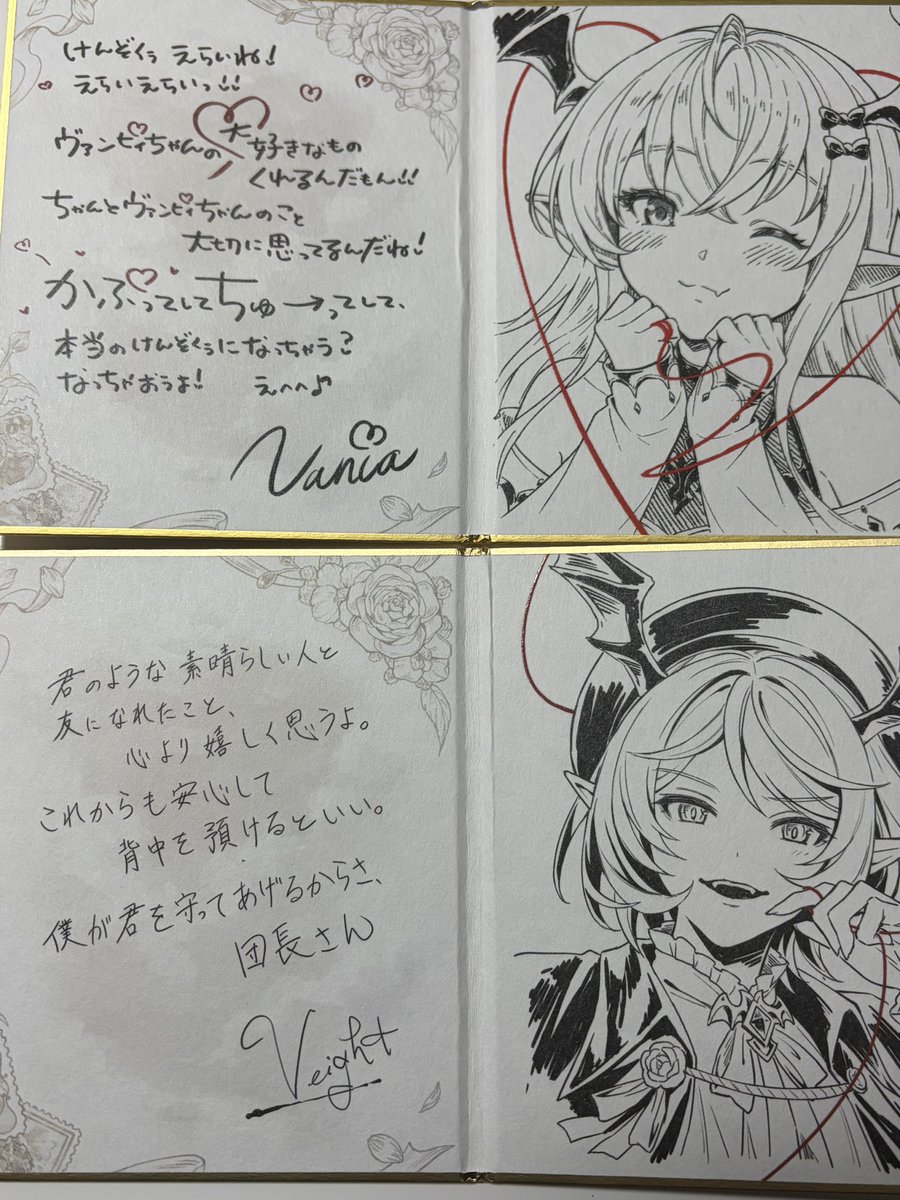 けんぞくぅ えらいね!
えらいえらいっ!!
ヴァンピィちゃんの大好きなもの
くれるんだもん!!
ちゃんとヴァンピィちゃんのこと
大切に思ってるんだね!
かぷってしてちゅーってして、
本当のけんぞくぅになっちゃう?
なっちゃおうよ! えへへ♪
Vania
君のような素晴らしい人と
友になれたこと、
心より嬉しく思うよ。
これからも安心して
背中を預けるといい。
僕が君を守ってあげるからさ、
団長さん
Veight